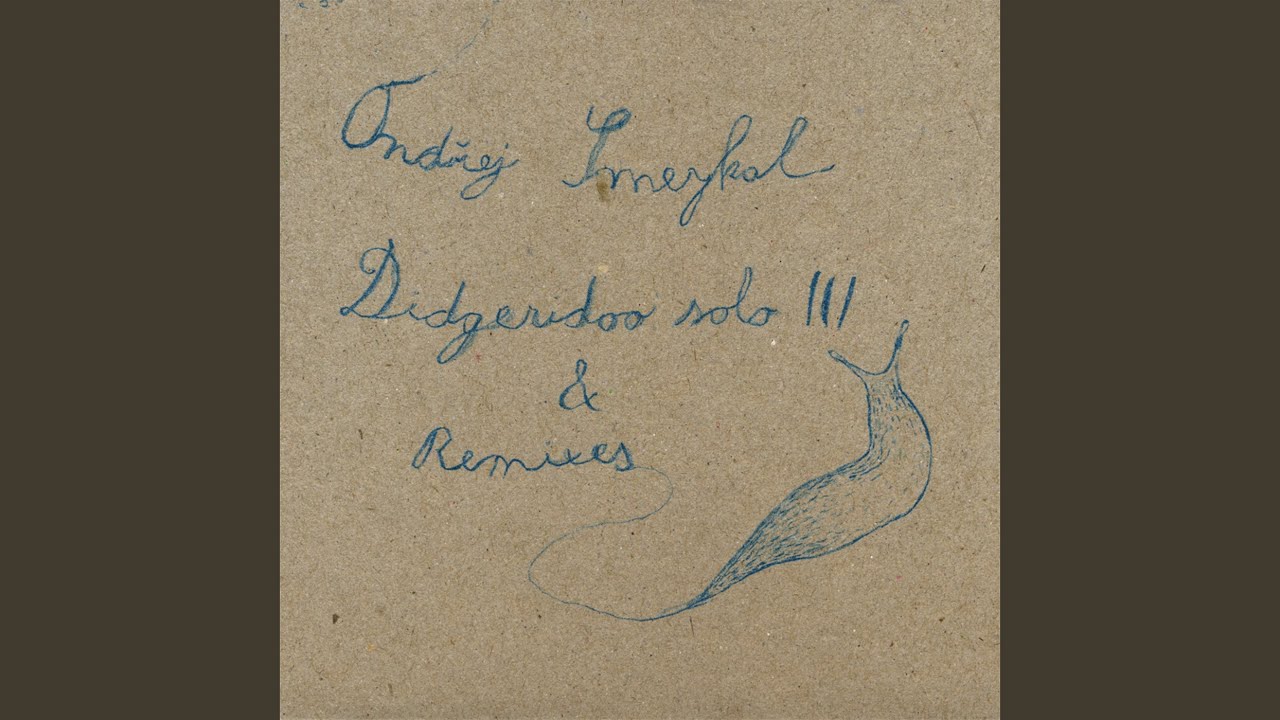 Ondřej Smeykal
Didgeridoo solo III
&
Remixes